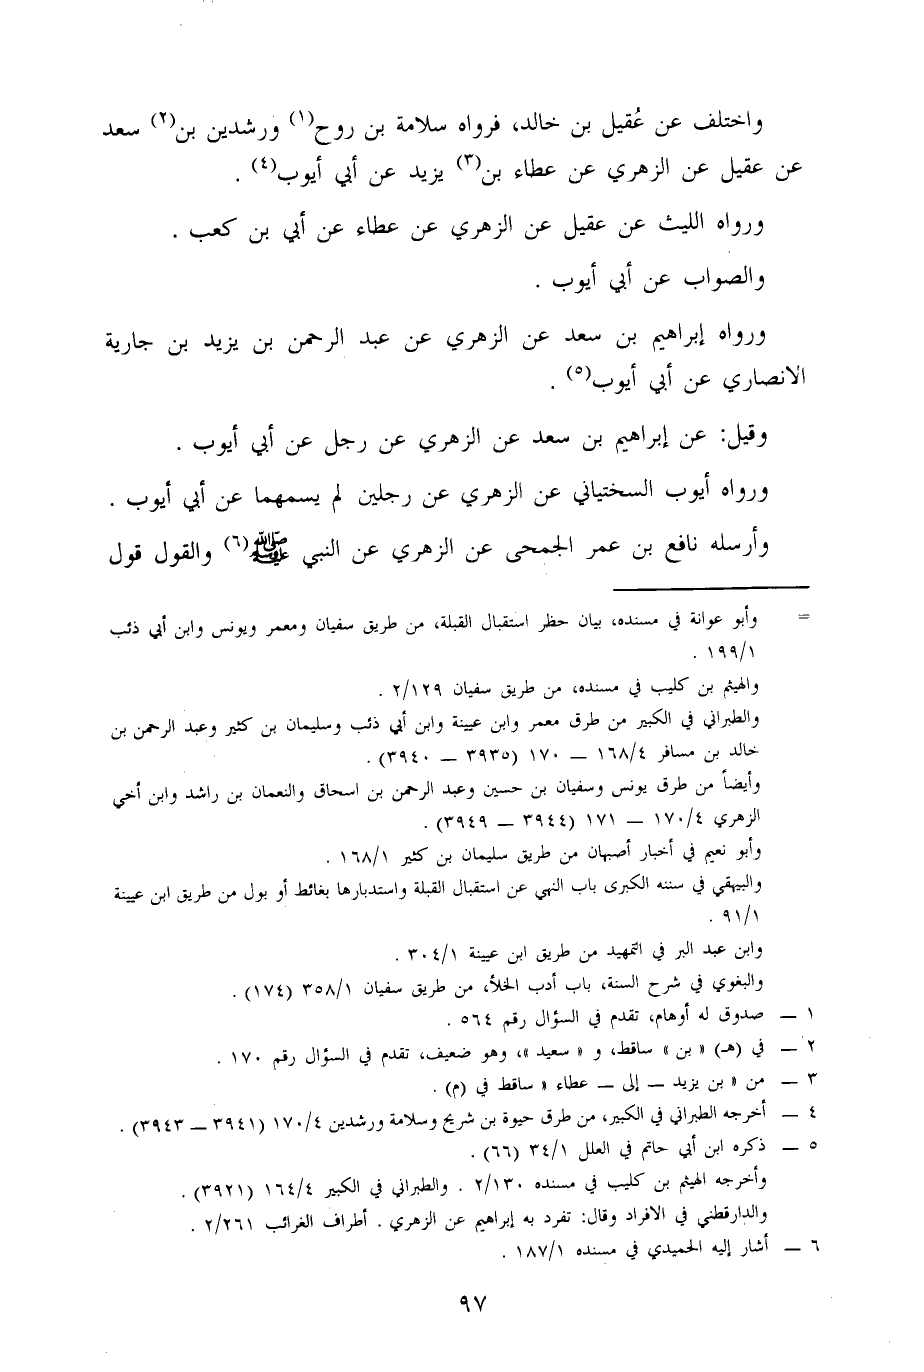 واختلف عن عُقيل بن خالد، فرواه سلامة بن روح(١) ورشدين بن(٢) سعد
عن عقيل عن الزهري عن عطاء بن(٣) يزيد عن أبي أيوب(٤) .
ورواه الليث عن عقيل عن الزهري عن عطاء عن أبي بن كعب .
والصواب عن أبي أيوب .
ورواه إبراهيم بن سعد عن الزهري عن عبد الرحمن بن يزيد بن جارية
الانصاري عن أبي أيوب(٥) .
وقيل: عن إبراهيم بن سعد عن الزهري عن رجل عن أبي أيوب .
ورواه أيوب السختياني عن الزهري عن رجلين لم يسمهما عن أبي أيوب .
وأرسله نافع بن عمر الجمحى عن الزهري عن النبي ﷺ(٦) والقول قول
= وأبو عوانة في مسنده، بيان حظر استقبال القبلة، من طريق سفيان ومعمر ويونس وابن أبي ذئب
١/١٩٩ .
والهيثم بن كليب في مسنده، من طريق سفيان ٢/١٢٩ .
والطبراني في الكبير من طرق معمر وابن عيينة وابن أبي ذئب وسليمان بن كثير وعبد الرحمن بن
خالد بن مسافر ٤/١٦٨ — ١٧٠ (٣٩٣٥ — ٣٩٤٠) .
وأيضاً من طرق يونس وسفيان بن حسين وعبد الرحمن بن اسحاق والنعمان بن راشد وابن أخي
الزهري ٤/١٧٠ — ١٧١ (٣٩٤٤ — ٣٩٤٩) .
وأبو نعيم في أخبار أصبهان من طريق سليمان بن كثير ١/١٦٨ .
والبيهقي في سننه الكبرى باب النهي عن استقبال القبلة واستدبارها بغائط أو بول من طريق ابن عيينة
١/٩١ .
وابن عبد البر في التمهيد من طريق ابن عيينة ١/٣٠٤ .
والبغوي في شرح السنة، باب أدب الخلأ، من طريق سفيان ١/٣٥٨ (١٧٤) .
١ — صدوق له أوهام، تقدم في السؤال رقم ٥٦٤ .
٢ — في (هـ) « بن » ساقط، و « سعيد »، وهو ضعيف، تقدم في السؤال رقم ١٧٠ .
٣ — من « بن يزيد — إلى — عطاء « ساقط في (م) .
٤ — أخرجه الطبراني في الكبير، من طرق حيوة بن شريح وسلامة ورشدين ٤/١٧٠ (٣٩٤١ — ٣٩٤٣) .
٥ — ذكره ابن أبي حاتم في العلل ١/٣٤ (٦٦) .
وأخرجه الهيثم بن كليب في مسنده ٢/١٣٠ . والطبراني في الكبير ٤/١٦٤ (٣٩٢١) .
والدارقطني في الافراد وقال: تفرد به إبراهيم عن الزهري . أطراف الغرائب ٢/٢٦١ .
٦ — أشار إليه الحميدي في مسنده ١/١٨٧ .
٩٧